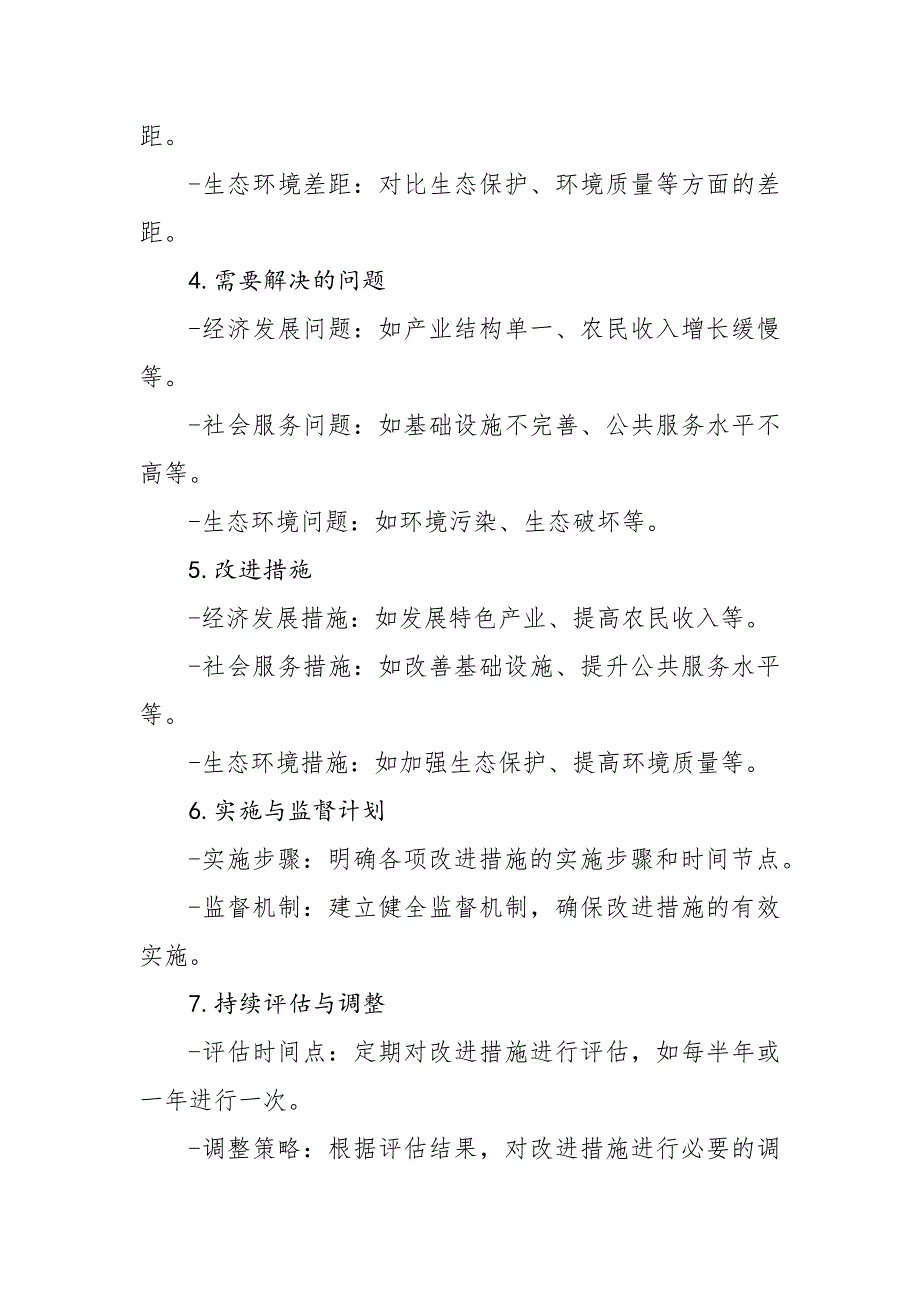 距。
-生态环境差距：对比生态保护、环境质量等方面的差
距。
4.需要解决的问题
-经济发展问题：如产业结构单一、农民收入增长缓慢
等。
-社会服务问题：如基础设施不完善、公共服务水平不
高等。
-生态环境问题：如环境污染、生态破坏等。
5.改进措施
-经济发展措施：如发展特色产业、提高农民收入等。
-社会服务措施：如改善基础设施、提升公共服务水平
等。
-生态环境措施：如加强生态保护、提高环境质量等。
6.实施与监督计划
-实施步骤：明确各项改进措施的实施步骤和时间节点。
-监督机制：建立健全监督机制，确保改进措施的有效
实施。
7.持续评估与调整
-评估时间点：定期对改进措施进行评估，如每半年或
一年进行一次。
-调整策略：根据评估结果，对改进措施进行必要的调